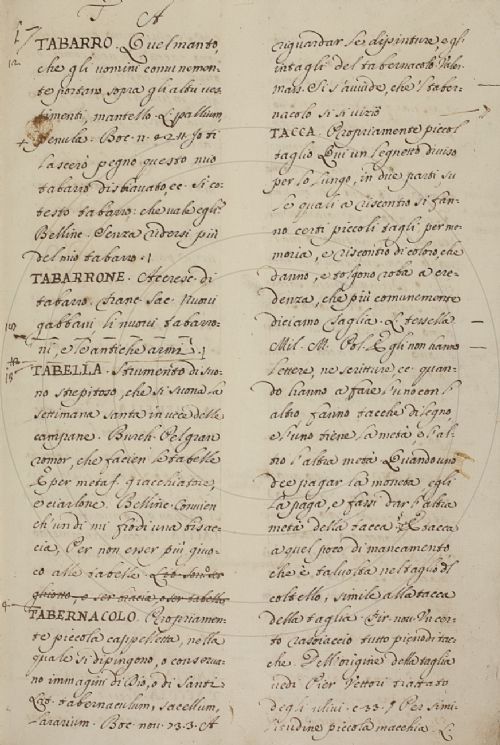 T A
TABARRO. Quel manto,
che gli uomini comunemen=
te portano sopra gli altri ves=
timenti, mantello. L. pallium,
penula. Boc. n. 42. 11. Io ti
lascerò pegno questo mio
tabarro di sbiavato, ec. Si co=
testo tabarro: che vale egli?
Belline. Senza ridorsi più
del mio tabarro.
TABARRONE. Accresc. di
tabarro. Franc. Sac. Nuovi
gabbani li nuovi tabarro=
ni, e le antiche armi.
TABELLA. Strumento di suo=
no strepitoso, che si suona la
settimana santa in vece delle
campane. Burch. Pel gran
romor, che facien le tabelle
E per metaf. giacchiatore,
e ciarlone. Belline. Convien
ch' un dì mi ficchi una bisac=
cia, Per non esser più giuo=
co alle tabelle.
TABERNACOLO. Propriamen=
te piccola cappelletta, nella
quale si dipingono, o conserva=
no immagini di Dio, o di Santi
Lat. tabernaculum, sacellum,
lararium. Boc. nov. 73. 3. A
riguardar le dipinture, e gl'
intagli del tabernacolo.
Si s'avvide, che 'l taber=
nacolo si
TACCA. Propriamente piccol
taglio Qui un legnetto diviso
per lo lungo, in due parti su
le quali a riscontro si fan=
no certi piccoli tagli per me=
moria, e riscontro di coloro, che
danno, e tolgono roba a cre=
denza, che più comunemente
diciamo Taglia. L. tessella
Mil. M. Pol. Egli non hanno
lettere, ne scritture ec. quan=
do hanno a fare l'uno con l'
altro fanno tacche di legno,
e l'uno tiene la metà, e l'al=
tro l'altra metà. Quando uno
dee pagar la moneta egli
la paga, e fassi dar l'altra
metà della tacca. E tacca
a quel poco di mancamento
che è talvolta nel taglio del
coltello, simile alla tacca
della taglia. Fir. nov. Un cor=
to rasciaccio tutto pieno di tac=
che. Dell'origine della taglia
vedi Pier Vettori trattato
degli ulivi. c. 33. Per simi=
litudine piccola macchia. L.